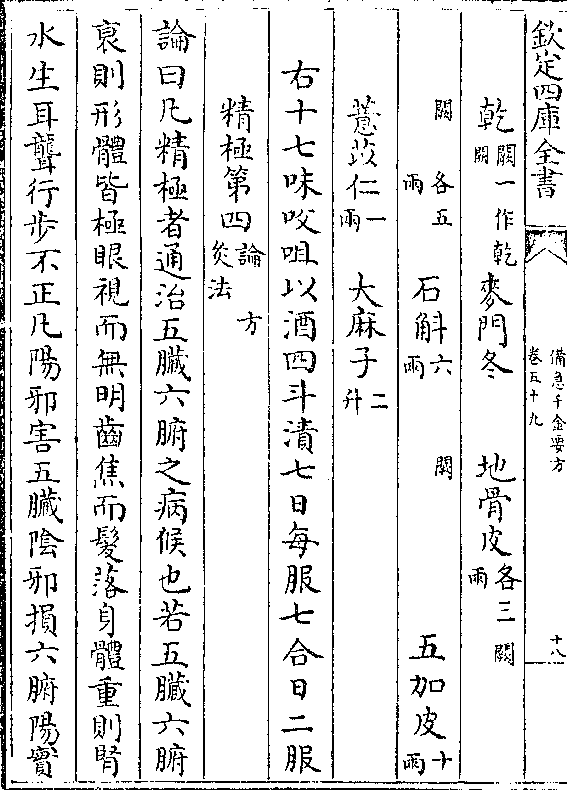 欽定四庫全書
備急千金要方
卷五十九
十八
乾闕闕一作乾 麥門冬 地骨皮各三兩 闕
闕 各五兩 石斛六兩 闕 五加皮十兩
薏苡仁一兩 大麻子二升
右十七味㕮咀以酒四斗漬七日每服七合日二服
精極第四論 方 灸法
論曰凡精極者通治五臟六腑之病候也若五臟六腑
衰則形體皆極眼視而無明齒焦而髮落身體重則腎
水生耳聾行步不正凡陽邪害五臟陰邪損六腑陽實